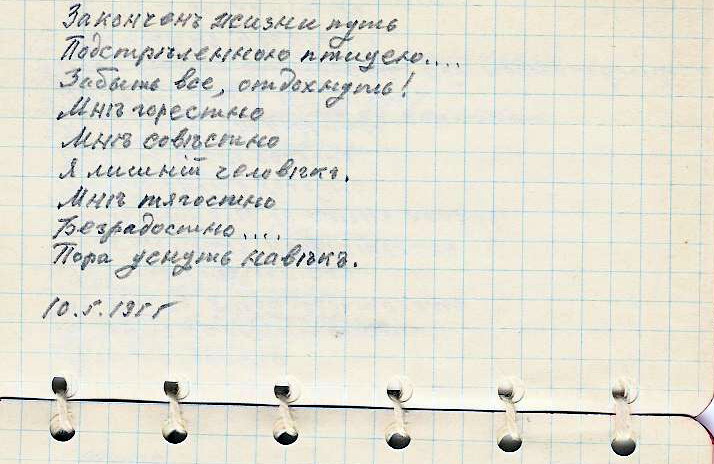 Законченъ жизни путь
Подстрѣленною птицею....
Забыть все, отдохнуть!
Мнѣ горестно
Мнѣ совѣстно
Я лишній человѣкъ.
Мнѣ тягостно
Безрадостно....
Пора уснуть навѣкъ.
10.5.1955